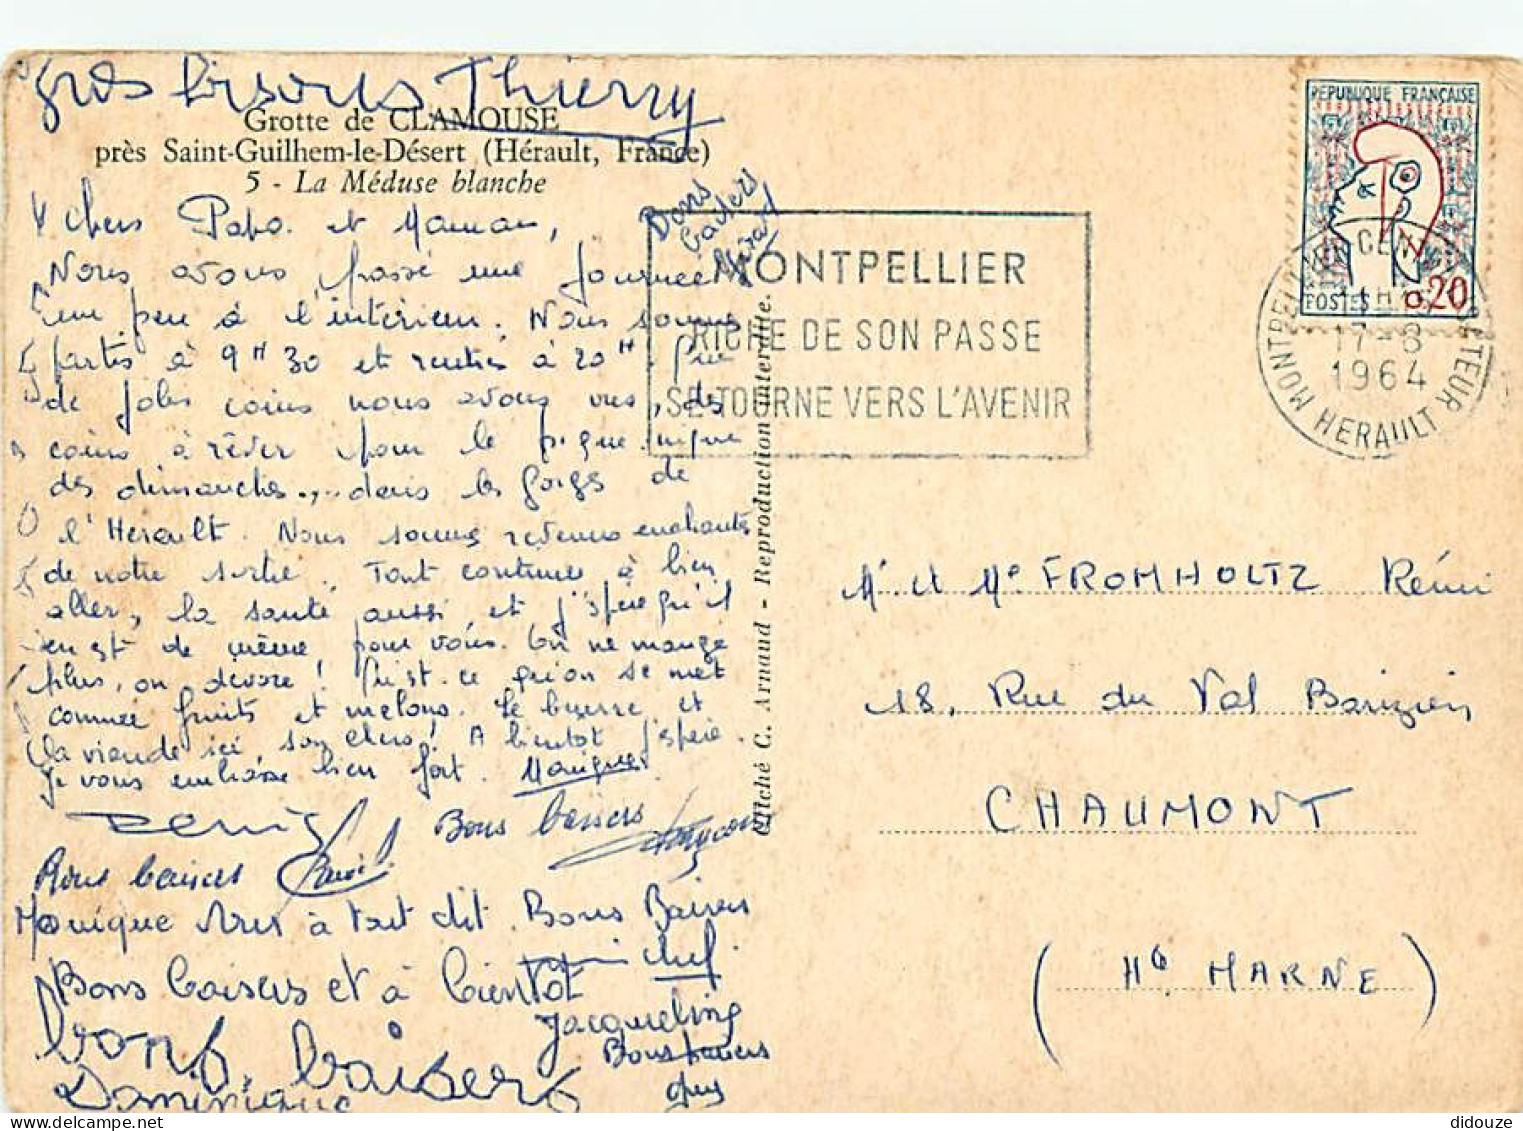 Gros bisous Thierry
Grotte de CLAMOUSE
près Saint-Guilhem-le-Désert (Hérault, France)
5 - La Méduse blanche
Bons
baisers
Chers Papa et Maman,
Nous avons passé une journée
un peu à l'intérieur. Nous sommes
partis à 9H30 et rentrés à 20H. Que
de jolis coins nous avons vus, des
coins à rêver pour le pique-nique
des dimanches... dans les gorges de
l'Herault. Nous sommes revenus enchantés
de notre sortie. Tout continue à bien
aller, la santé aussi et j'espère qu'il
en est de même pour vous. On ne mange
plus, on dévore! Qu'est-ce qu'on se met
comme fruits et melons. Le beurre et
la viande ici, son chers! A bientot j'espère.
Je vous embrasse bien fort. Monique
Denis
Bons baisers
Bons baisers
Monique
à tout dit. Bons Baisers
Michel
Bons baisers et à bientot
Jacqueline
bons baisers
Dominique
Bons baisers
MONTPELLIER
RICHE DE SON PASSE
SE TOURNE VERS L'AVENIR
REPUBLIQUE FRANÇAISE
POSTES 0,20
17-8
1964
HERAULT
Cliché C. Arnaud - Reproduction interdite.
Mr et Me FROMHOLTZ Rémi
18, Rue du Val Barizien
CHAUMONT
(Hte MARNE)
didouze